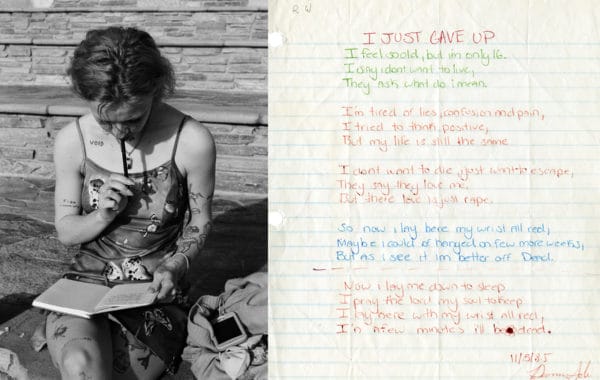 I JUST GAVE UP
I feel so old, but im only 16.
I say i dont want to live,
They ask what do i mean.
I'm tired of lies, confusion and pain,
I tried to think, positive,
But my life is still the same
I dont want to die, just want to escape,
They say they love me,
But there love is just rape.
So now i lay here my wrist all red,
Maybe i could of hanged on few more weeks,
But as i see it im better off Dead.
Now i lay me down to sleep
I pray the lord my soul to keep
I lay here with my wrist all red,
I'n a few minutes i'll be dead.
11/5/85
VOID